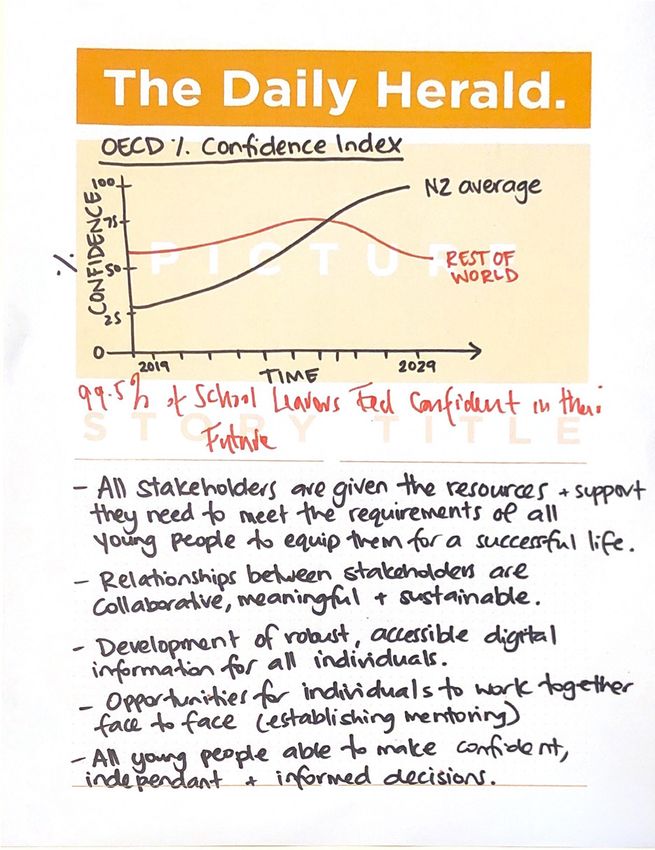 The Daily Herald.
OECD % Confidence Index
100
75
50
25
0
% CONFIDENCE
PICTURE
NZ average
REST OF
WORLD
2019
2029
TIME
99.5% of School Leavers Feel Confident in their
Future
STORY TITLE
- All stakeholders are given the resources + support
they need to meet the requirements of all
young people to equip them for a successful life.
- Relationships between stakeholders are
collaborative, meaningful + sustainable.
- Development of robust, accessible digital
information for all individuals.
- Opportunities for individuals to work together
face to face (establishing mentoring)
- All young people able to make confident,
independant + informed decisions.